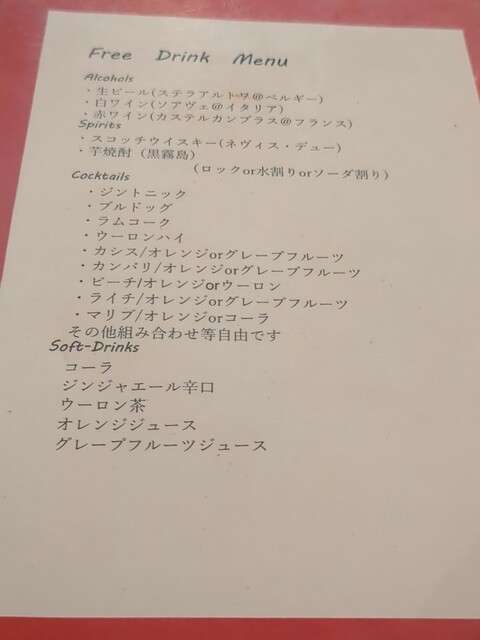 Free Drink Menu
Alcohols
・生ビール(ステラアルトワ@ベルギー)
・白ワイン(ソアヴェ@イタリア)
・赤ワイン(カステルカンブラス@フランス)
Spirits
・スコッチウイスキー(ネヴィス・デュー)
・芋焼酎（黒霧島）
(ロックor水割りorソーダ割り)
Cocktails
・ジントニック
・ブルドッグ
・ラムコーク
・ウーロンハイ
・カシス/オレンジorグレープフルーツ
・カンパリ/オレンジorグレープフルーツ
・ピーチ/オレンジorウーロン
・ライチ/オレンジorグレープフルーツ
・マリブ/オレンジorコーラ
その他組み合わせ等自由です
Soft-Drinks
コーラ
ジンジャエール辛口
ウーロン茶
オレンジジュース
グレープフルーツジュース